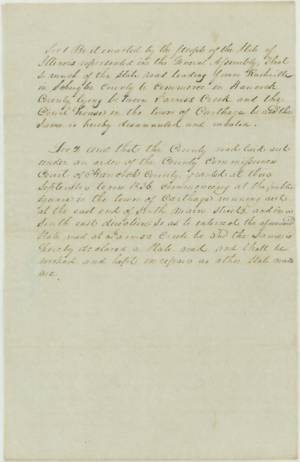 Sec 1 Be it enacted by the people of the State of
Illinois represented in the General Assembly, That
so much of the State road leading from Rushville
in Schuyler County to Commerce in Hancock
County, lying between Crooked Creek and the
Court House in the town of Carthage be and the
same is hereby disannulled and
Sec 2 And that the County road laid out
under an order of the County Commissioners
Court of Hancock County, granted at their
September term 1836, commencing at the public
square in the town of Carthage running out
at the east end of Main Street, and in a
South east direction so as to intersect the aforesaid
State road at Creek be and the same is
hereby declared a State road and shall be
worked and kept in repair as other State roads
are.